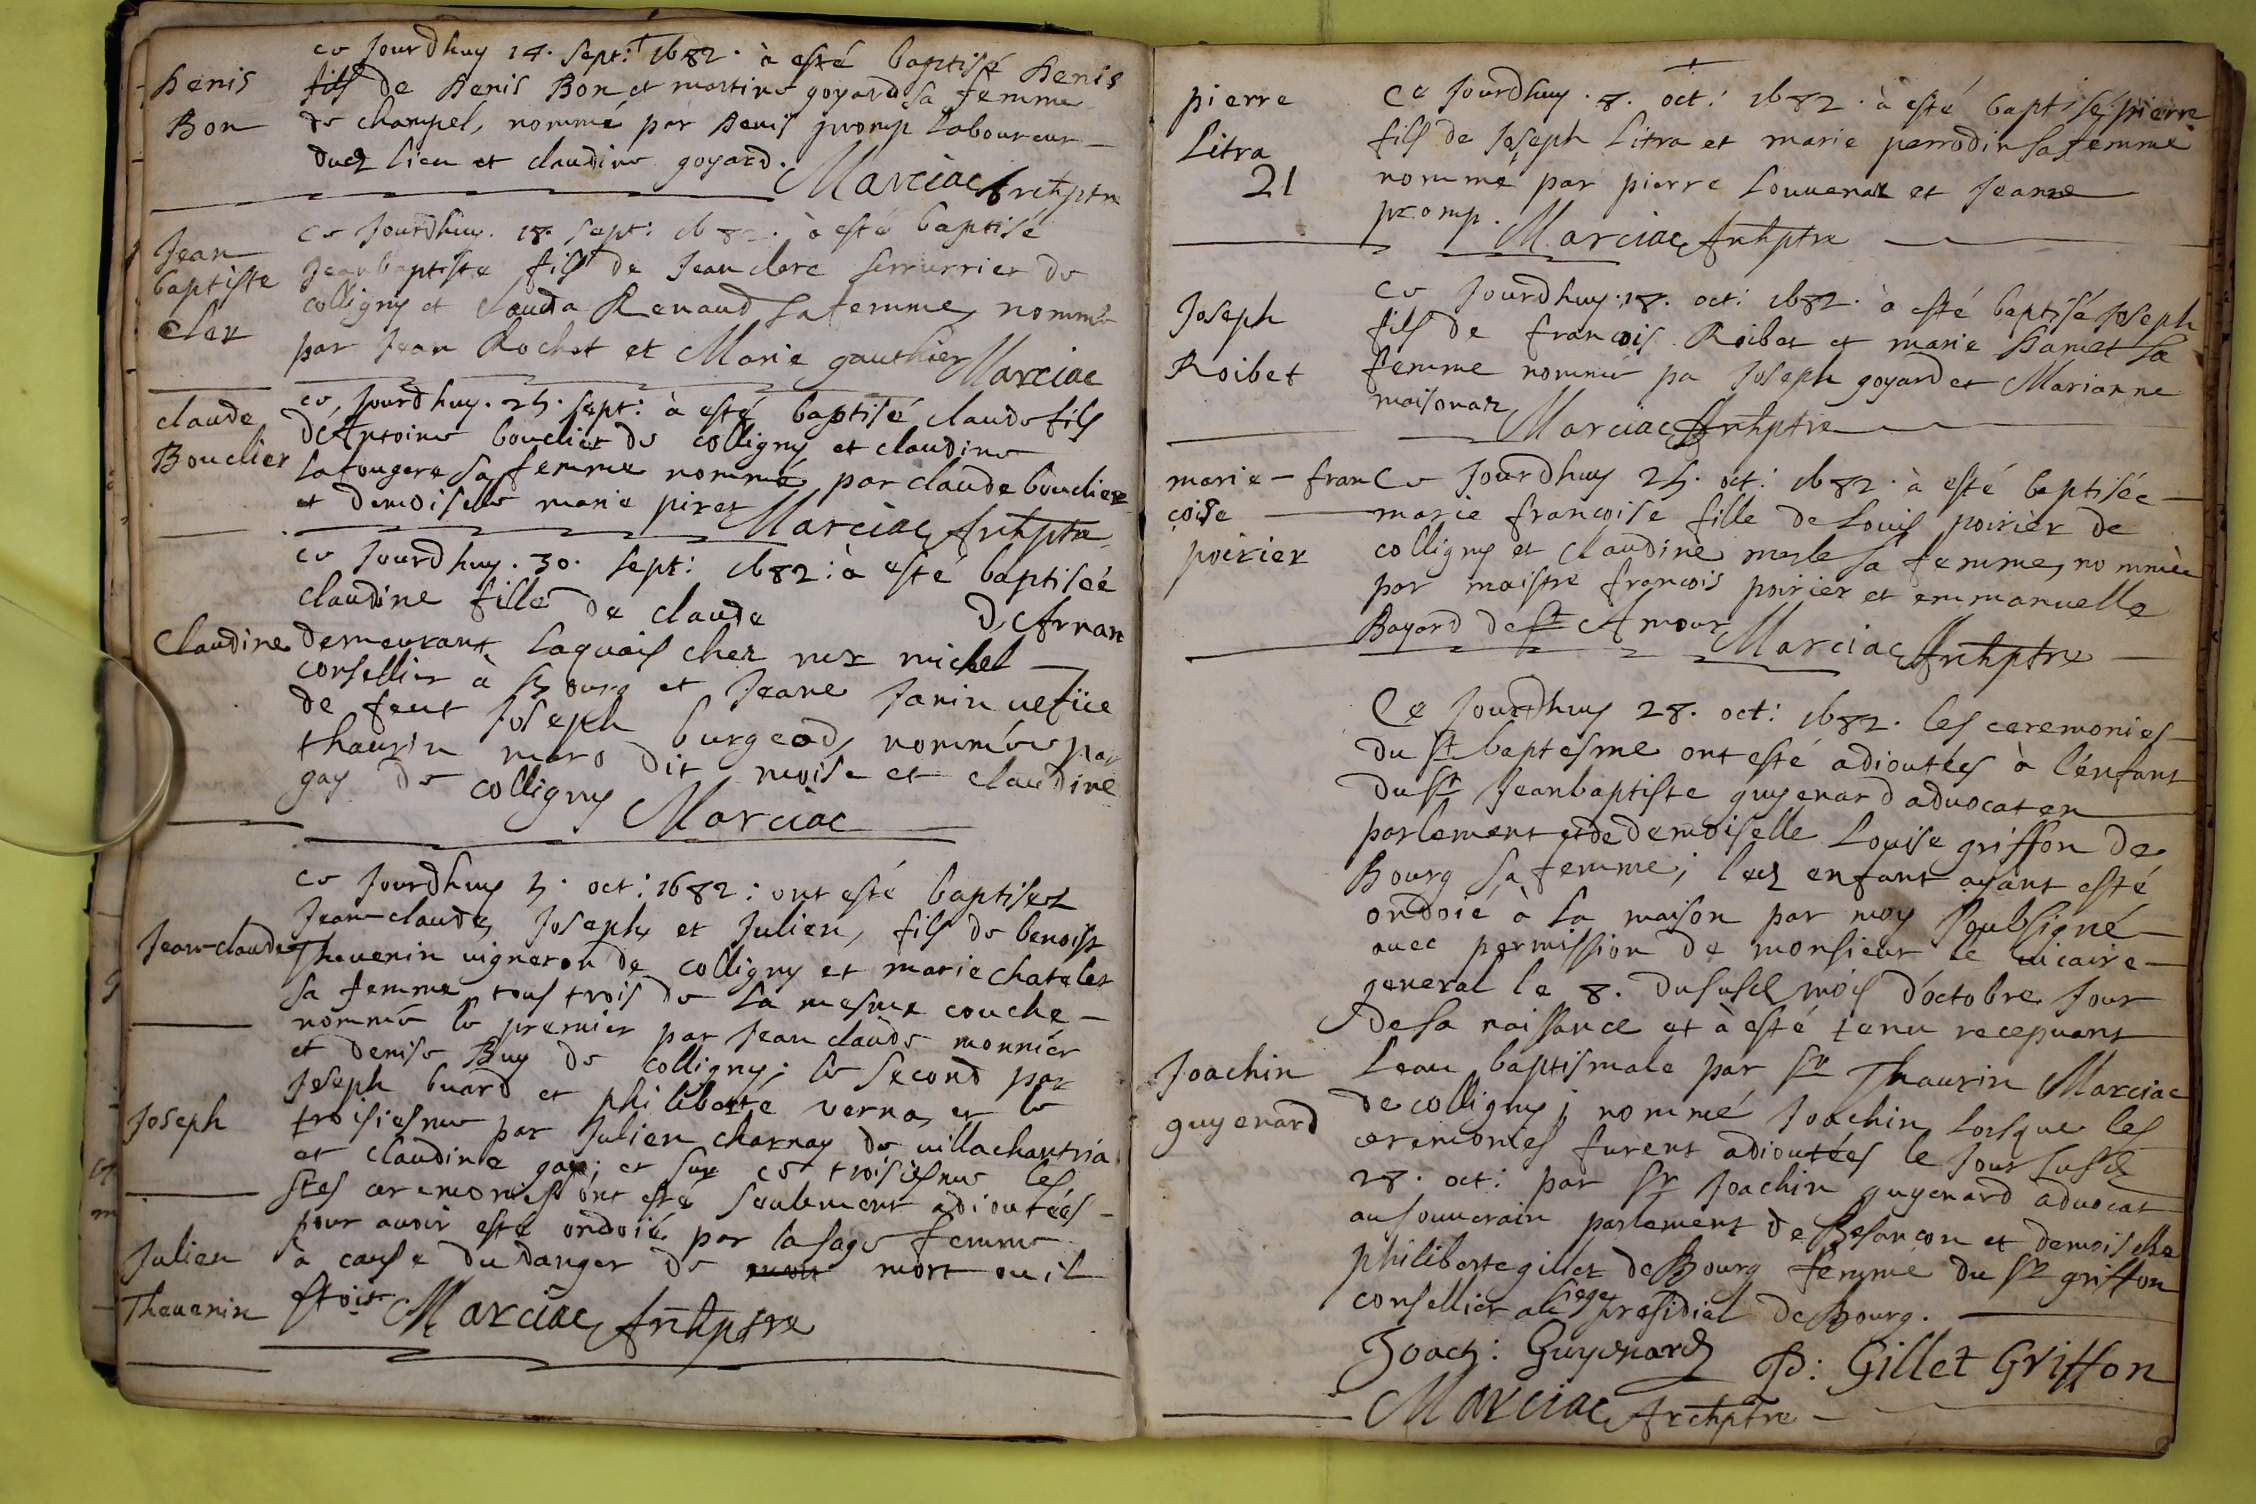 Denis
Bon
ce Jourdhuy 14. sept: 1682. à esté baptisé Denis
fils de Denis Bon et martine goyard sa femme
de champel, nommé par Denis promp Laboureur
dud lieu et claudine goyard. Marciac Archptre
Jean
baptiste
Cler
ce Jourdhuy. 18. sept: 1682. à esté baptisé
Jeanbaptiste fils de Jean clerc serrurier de
colligny et clauda Renaud sa femme, nommé
par Jean Rochet et Marie gauthier Marciac
claude
Bouclier
ce, Jourdhuy. 25. sept: à esté baptisé claude fils
d'Antoine bouclier de colligny et claudine
lafougere sa femme nommé par claude bouclier
et demoiselle marie piret Marciac Archptre
Claudine
ce Jourdhuy. 30. sept: 1682: à esté baptiseé
claudine fille de claude D'Arnan
demeurant laquais chez mr michel
consellier à Bourg et Jeane Janin vefüe
de feut Joseph burgeod, nommée par
thaurin maro dit moise et claudine
gay de colligny Marciac
Jean-claude
Joseph
Julien
Thevenin
ce Jourdhuy 5. oct: 1682: ont esté baptisez
Jean-claude, Joseph, et Julien, fils de benoist
Thevenin vigneron de colligny et marie chatelet
sa femme, tous trois de la mesme couche
nommé le premier par Jean claude monnier
et denise Buy de colligny; le second par
Joseph buard et philiberte verna, et le
troisiesme par Julien charnay de villachantria
et claudine gay; et sur ce troisiesme les
stes ceremonies ont esté seulement adioutées
pour avoir esté ondoié par la sage femme
à cause du danger de mort ou il
estoit Marciac Archptre
pierre
Litra
21
Ce Jourdhuy. 8. oct: 1682. à esté baptisé pierre
fils de Joseph Litra et marie perrodin sa femme
nommé par pierre Louvenat et Jeanne
promp. Marciac Archptre
Joseph
Roibet
ce Jourdhuy. 18. oct: 1682. à esté baptisé Joseph
fils de francois Roibet et marie Danet sa
femme nommé pa Joseph goyard et Marianne
maisonat Marciac Archptre
marie-fran
çoise
poirier
Ce Jourdhuy 25. oct: 1682. à esté baptisée
marie francoise fille de Louis poirier de
colligny et claudine merle sa femme, nommèe
par maistre francois poirier et emmanuelle
Bayard de St Amour Marciac Archptre
Ce Jourdhuy 28. oct: 1682. les ceremonies
du St baptesme ont esté adioutées à l'enfant
du Sr Jeanbaptiste guyenard advocat en
parlement et de demoiselle Louise griffon de
Bourg sa femme; led enfant ayant esté
ondoié à la maison par moy soubsigné
avec permission de monsieur le vicaire
general le 8. du susd mois d'octobre Jour
de sa naissance et à esté tenu recepvant
Joachin
guyenard
l'eau baptismale par Sr Thaurin Marciac
de colligny; nommé Joachin lorsque les
ceremonies furent adioutées le Jour susd
28. oct: par Sr Joachin guyenard advocat
au souverain parlement de Besançon et demoiselle
philiberte gillet de Bourg femme du Sr griffon
consellier au siege presidial de Bourg.
Joach: Guyenard P: Gillet Griffon
Marciac Archptre